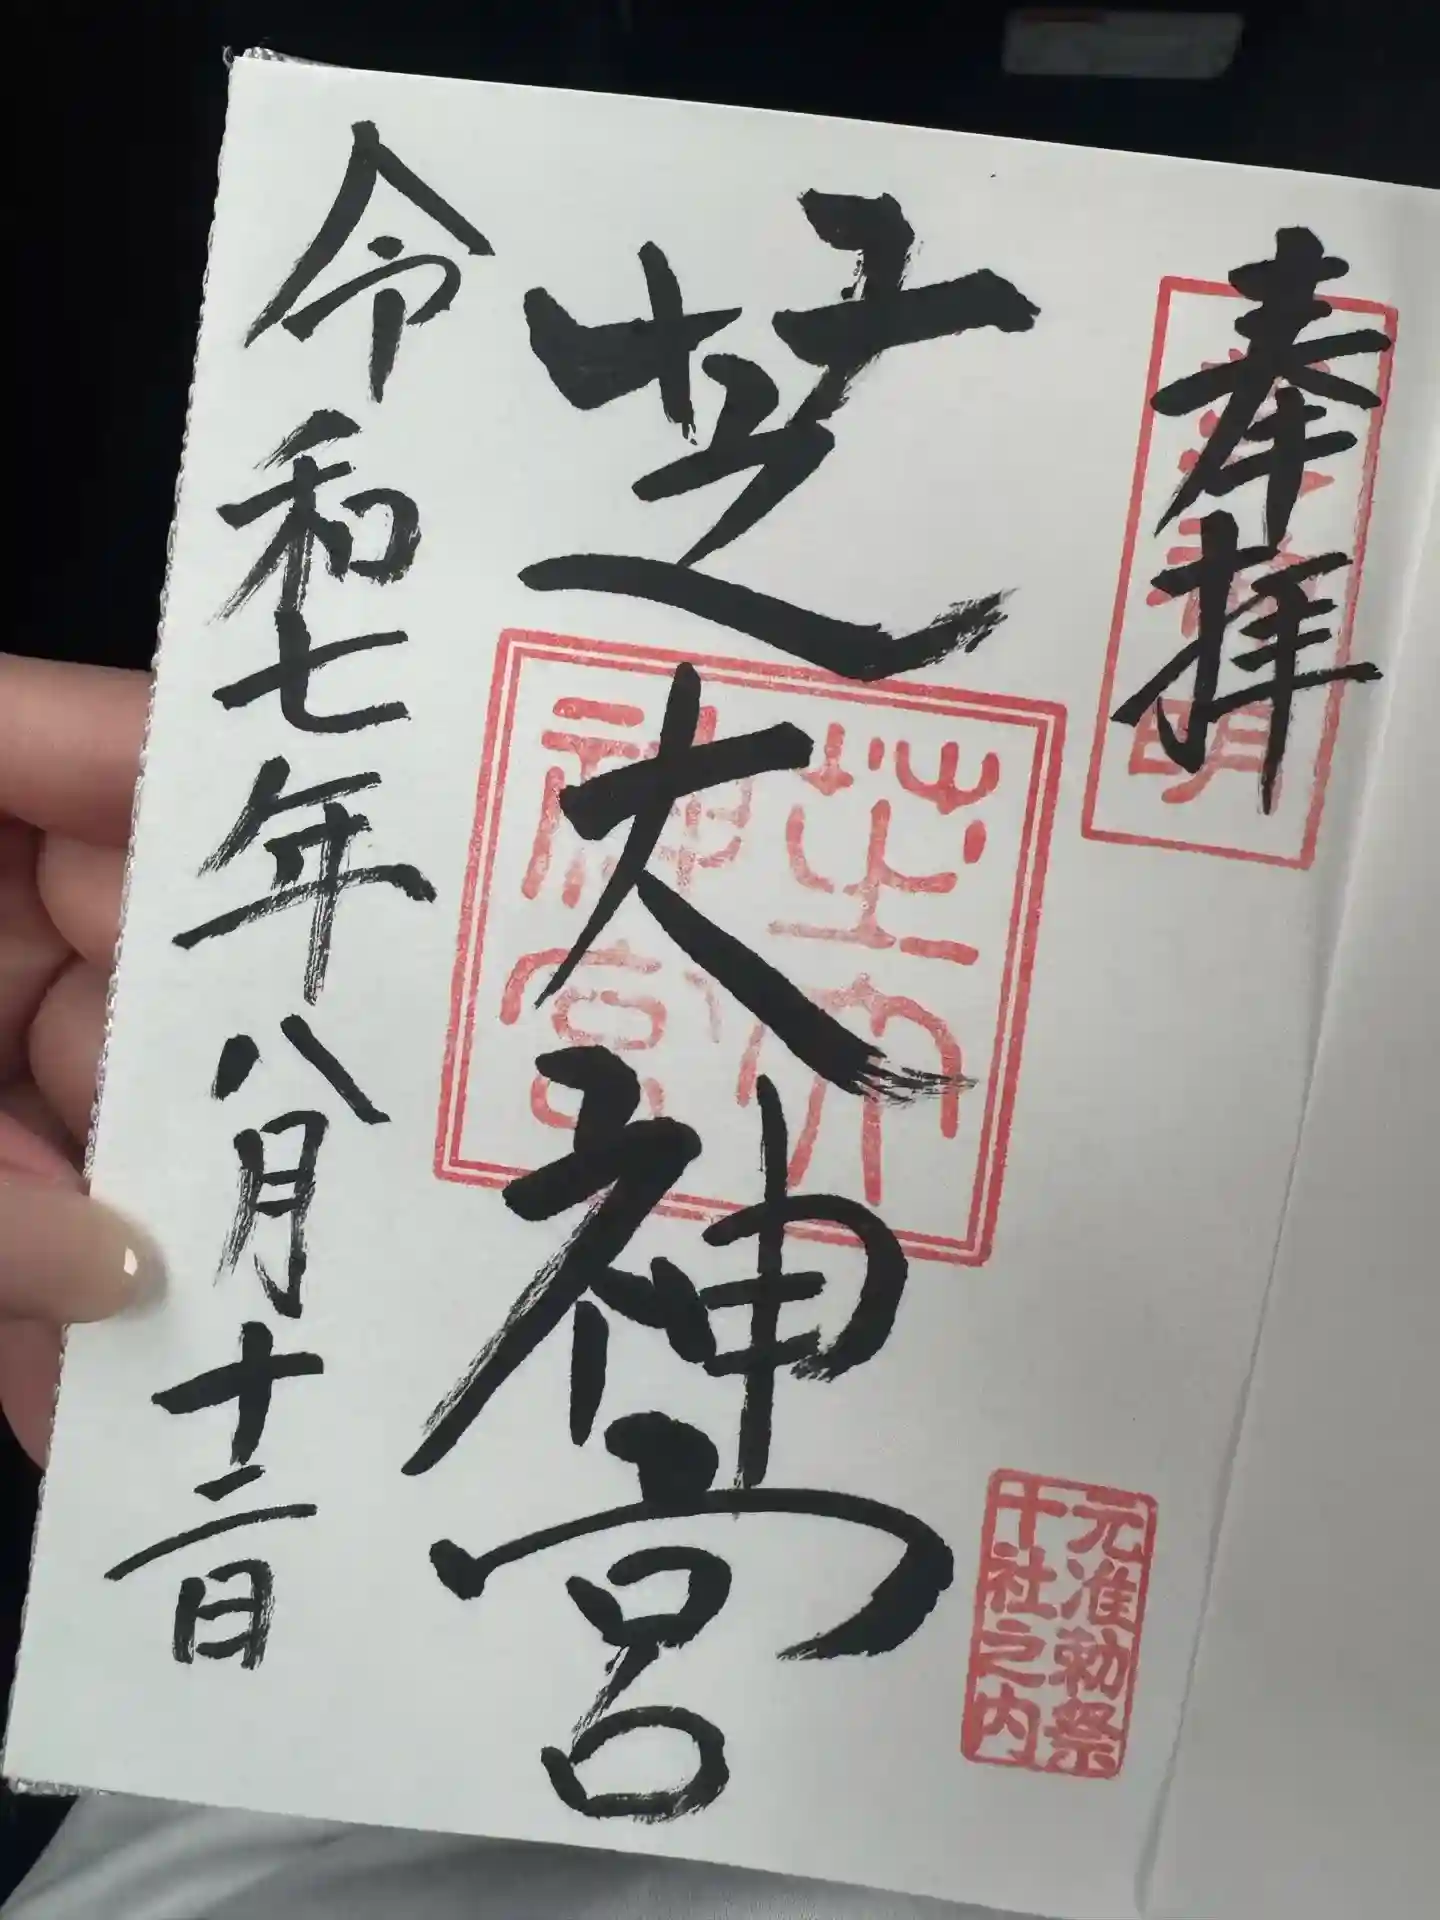 奉拝
元准勅祭
十社之内
芝大神宮
芝大
神宮
令和七年八月十二日